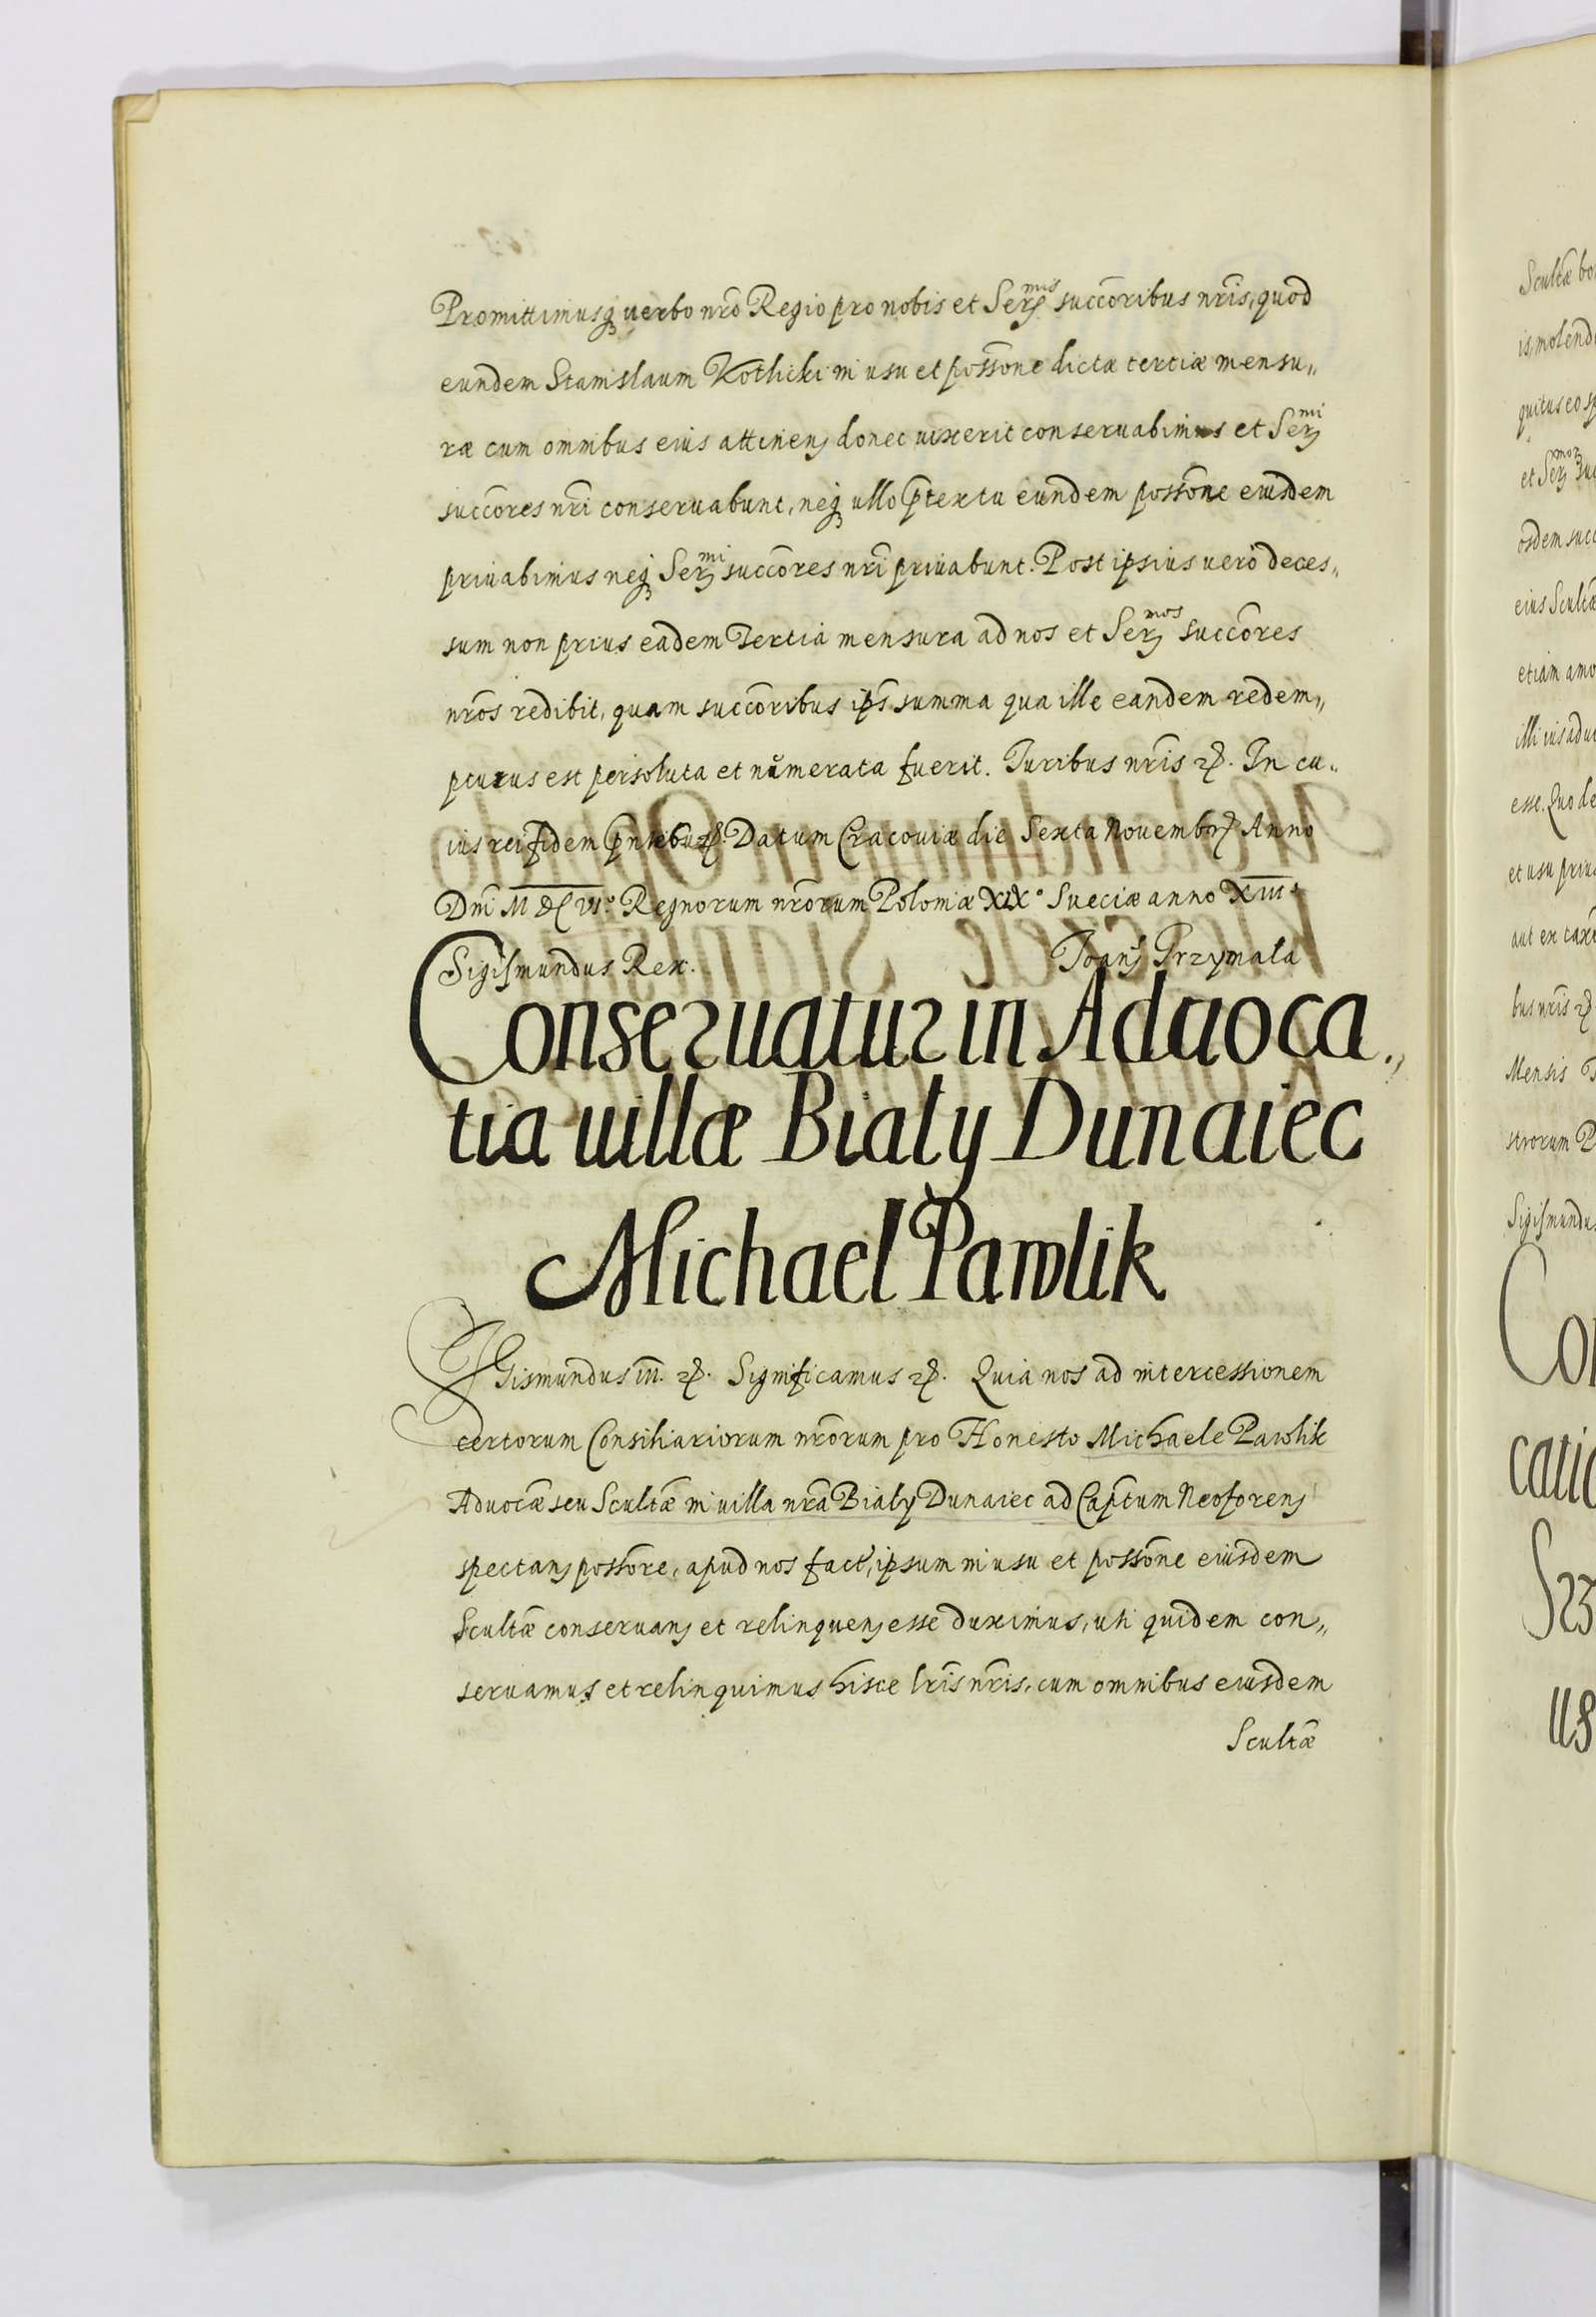 Promittimusq verbo nrõ Regio pro nobis et Ser^mis succoribus nris, quod
eundem Stanislaum Kotlicki in usu et possone dictæ tertiæ mensu„
ræ cum omnibus eius attinen donec vixerit conservabimus et Ser^mi
succores nri conservabunt, neq ullo ptextu eundem possone eiusdem
privabimus neq Ser^mi succores nri privabunt. Post ipsius vero deces„
sum non prius eadem Tertia mensura ad nos et Ser^mos succores
nros redibit, quam succoribus ips summa qua ille eandem redem„
pturus est persoluta et numerata fuerit. Iuribus nris &. In cu„
ius rei fidem pntibus &. Datum Cracoviæ die Sexta Novembr Anno
Dni M DC VI.° Regnorum nrorum Poloniæ XIX° Sueciæ anno XIII°
Sigismundus Rex. Ioan Przymala
Conseruatur in Aduoca„
tia uillæ Biały Dunaiec
Michael Pawlik
SGismundus III. &. Significamus &. Quia nos ad intercessionem
certorum Consiliariorum nrorum pro Honesto Michaele Pawlik
Advocæ seu Scultæ in villa nra Biały Dunaiec ad Captum Neoforen
spectan possore, apud nos fact, ipsum in usu et possone eiusdem
Scultæ conservan et relinquen esse duximus, uti quidem con„
servamus et relinquimus hisce lris nris, cum omnibus eiusdem
Scultæ
Scultæ
et Ser
eius Scultæ
etiam
esse. Quo
et usu
bus nris &
Mensis
Sigismundus